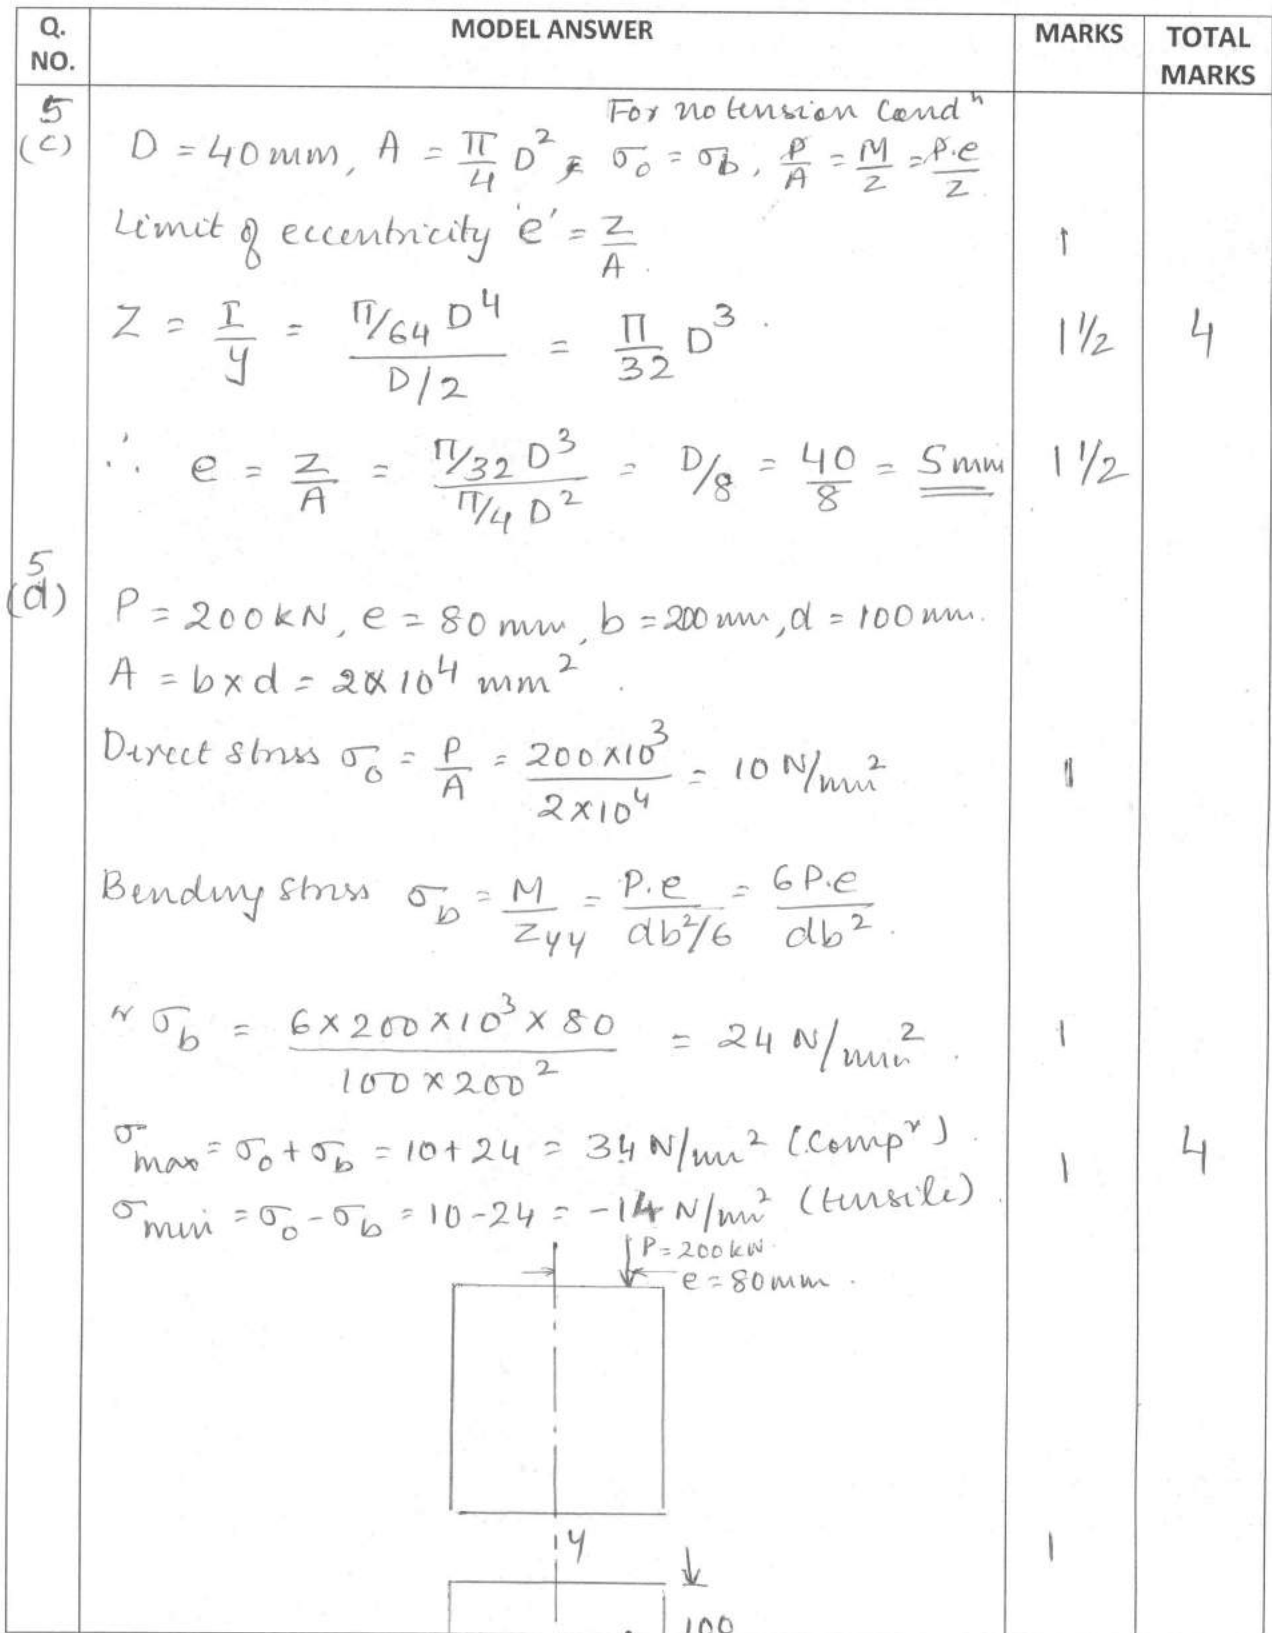 Q. NO. MODEL ANSWER MARKS TOTAL MARKS
5 (c)
For no tension Condⁿ
D = 40 mm, A = π/4 D², σ₀ = σb, P/A = M/Z = P.e/Z
Limit of eccentricity 'e' = Z/A. 1
Z = I/y = (π/64 D⁴)/(D/2) = π/32 D³. 1½ 4
∴ e = Z/A = (π/32 D³)/(π/4 D²) = D/8 = 40/8 = 5 mm 1½
5 (d)
P = 200 kN, e = 80 mm, b = 200 mm, d = 100 mm.
A = b x d = 2 x 10⁴ mm².
Direct stress σ₀ = P/A = (200 x 10³)/(2 x 10⁴) = 10 N/mm² 1
Bending stress σb = M/Zyy = P.e/(db²/6) = 6P.e/db².
" σb = (6 x 200 x 10³ x 80)/(100 x 200²) = 24 N/mm². 1
σmax = σ₀ + σb = 10 + 24 = 34 N/mm² (Compʳ). 4
σmin = σ₀ - σb = 10 - 24 = -14 N/mm² (tensile). 1
P = 200 kN.
e = 80 mm.
Y 1
100